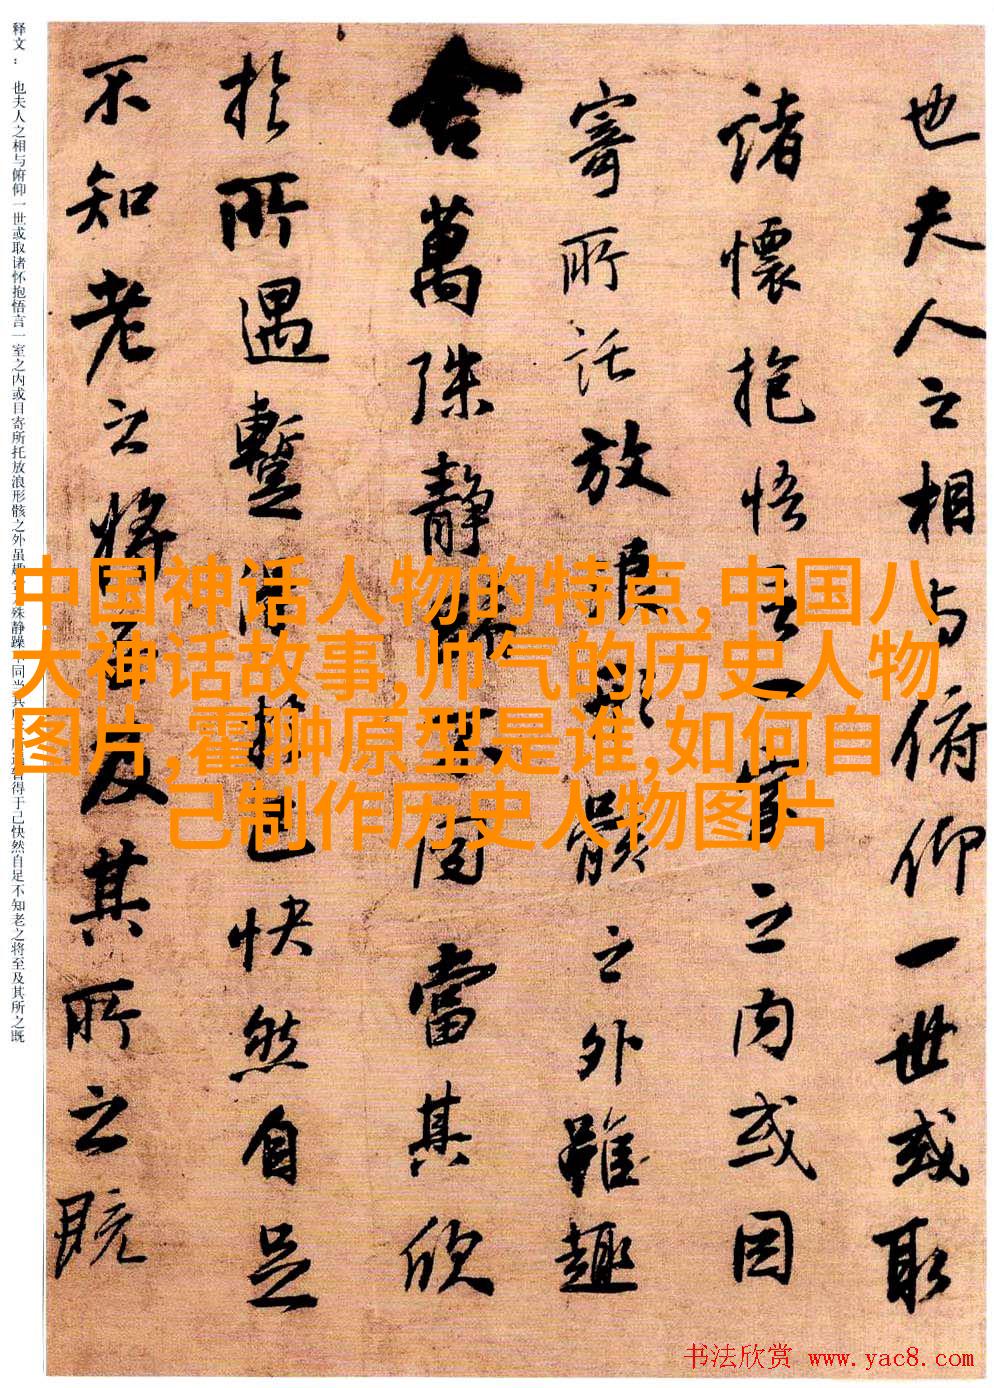 释文： 也夫人之相与俯仰一世或取诸怀抱悟言一室之内或目寄所托放浪形骸之外虽趣殊静躁不同当其得于己快然自足不知老之将至及其所之既
也夫人之相与俯仰一世或取
諸懷抱悟言一室之内或因
寄所託放浪形骸之外雖趣
舍萬殊静不同當其欣
於所遇蹔得於己快然自足
不知老之将至及其所之既
中国神话人物的特点,中国八
大神话故事,帅气的历史人物
图片,霍翀原型是谁,如何自
己制作历史人物图片
书法欣赏 www.yac8.com